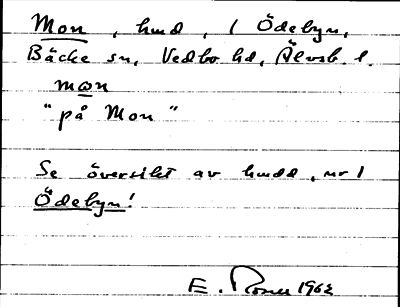 Mon, hmd, 1 Ödebyn,
Bäcke sn, Vedbo hd, Älvsb. l.
mon
"på Mon"
Se översikt av hmdd, nr 1
Ödebyn!
E. Rosell 1962